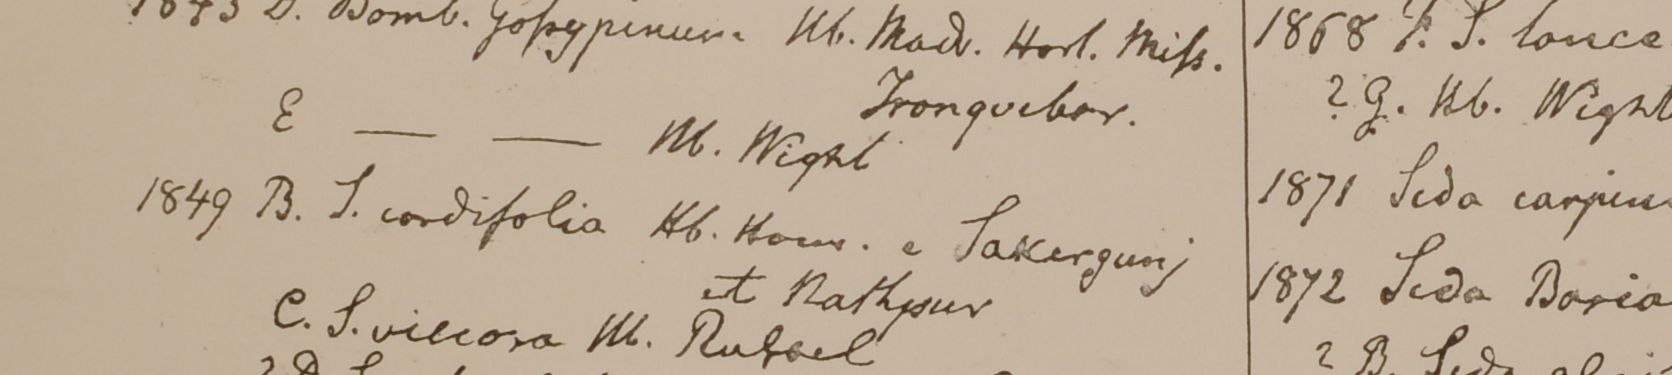 1843 D. Bomb. Goſsypinum Hb. Madr. Horl. Miſs.
Tronquebar.
E — — Hb. Wight
1849 B. S. cordifolia Hb. Ham. e Sakergunj
et Nathpur
C. S. villosa Hb. Ruſsel
1868 F. S. lance
? G. Hb. Wight
1871 Sida carpin
1872 Sida Boria
? B. Sida